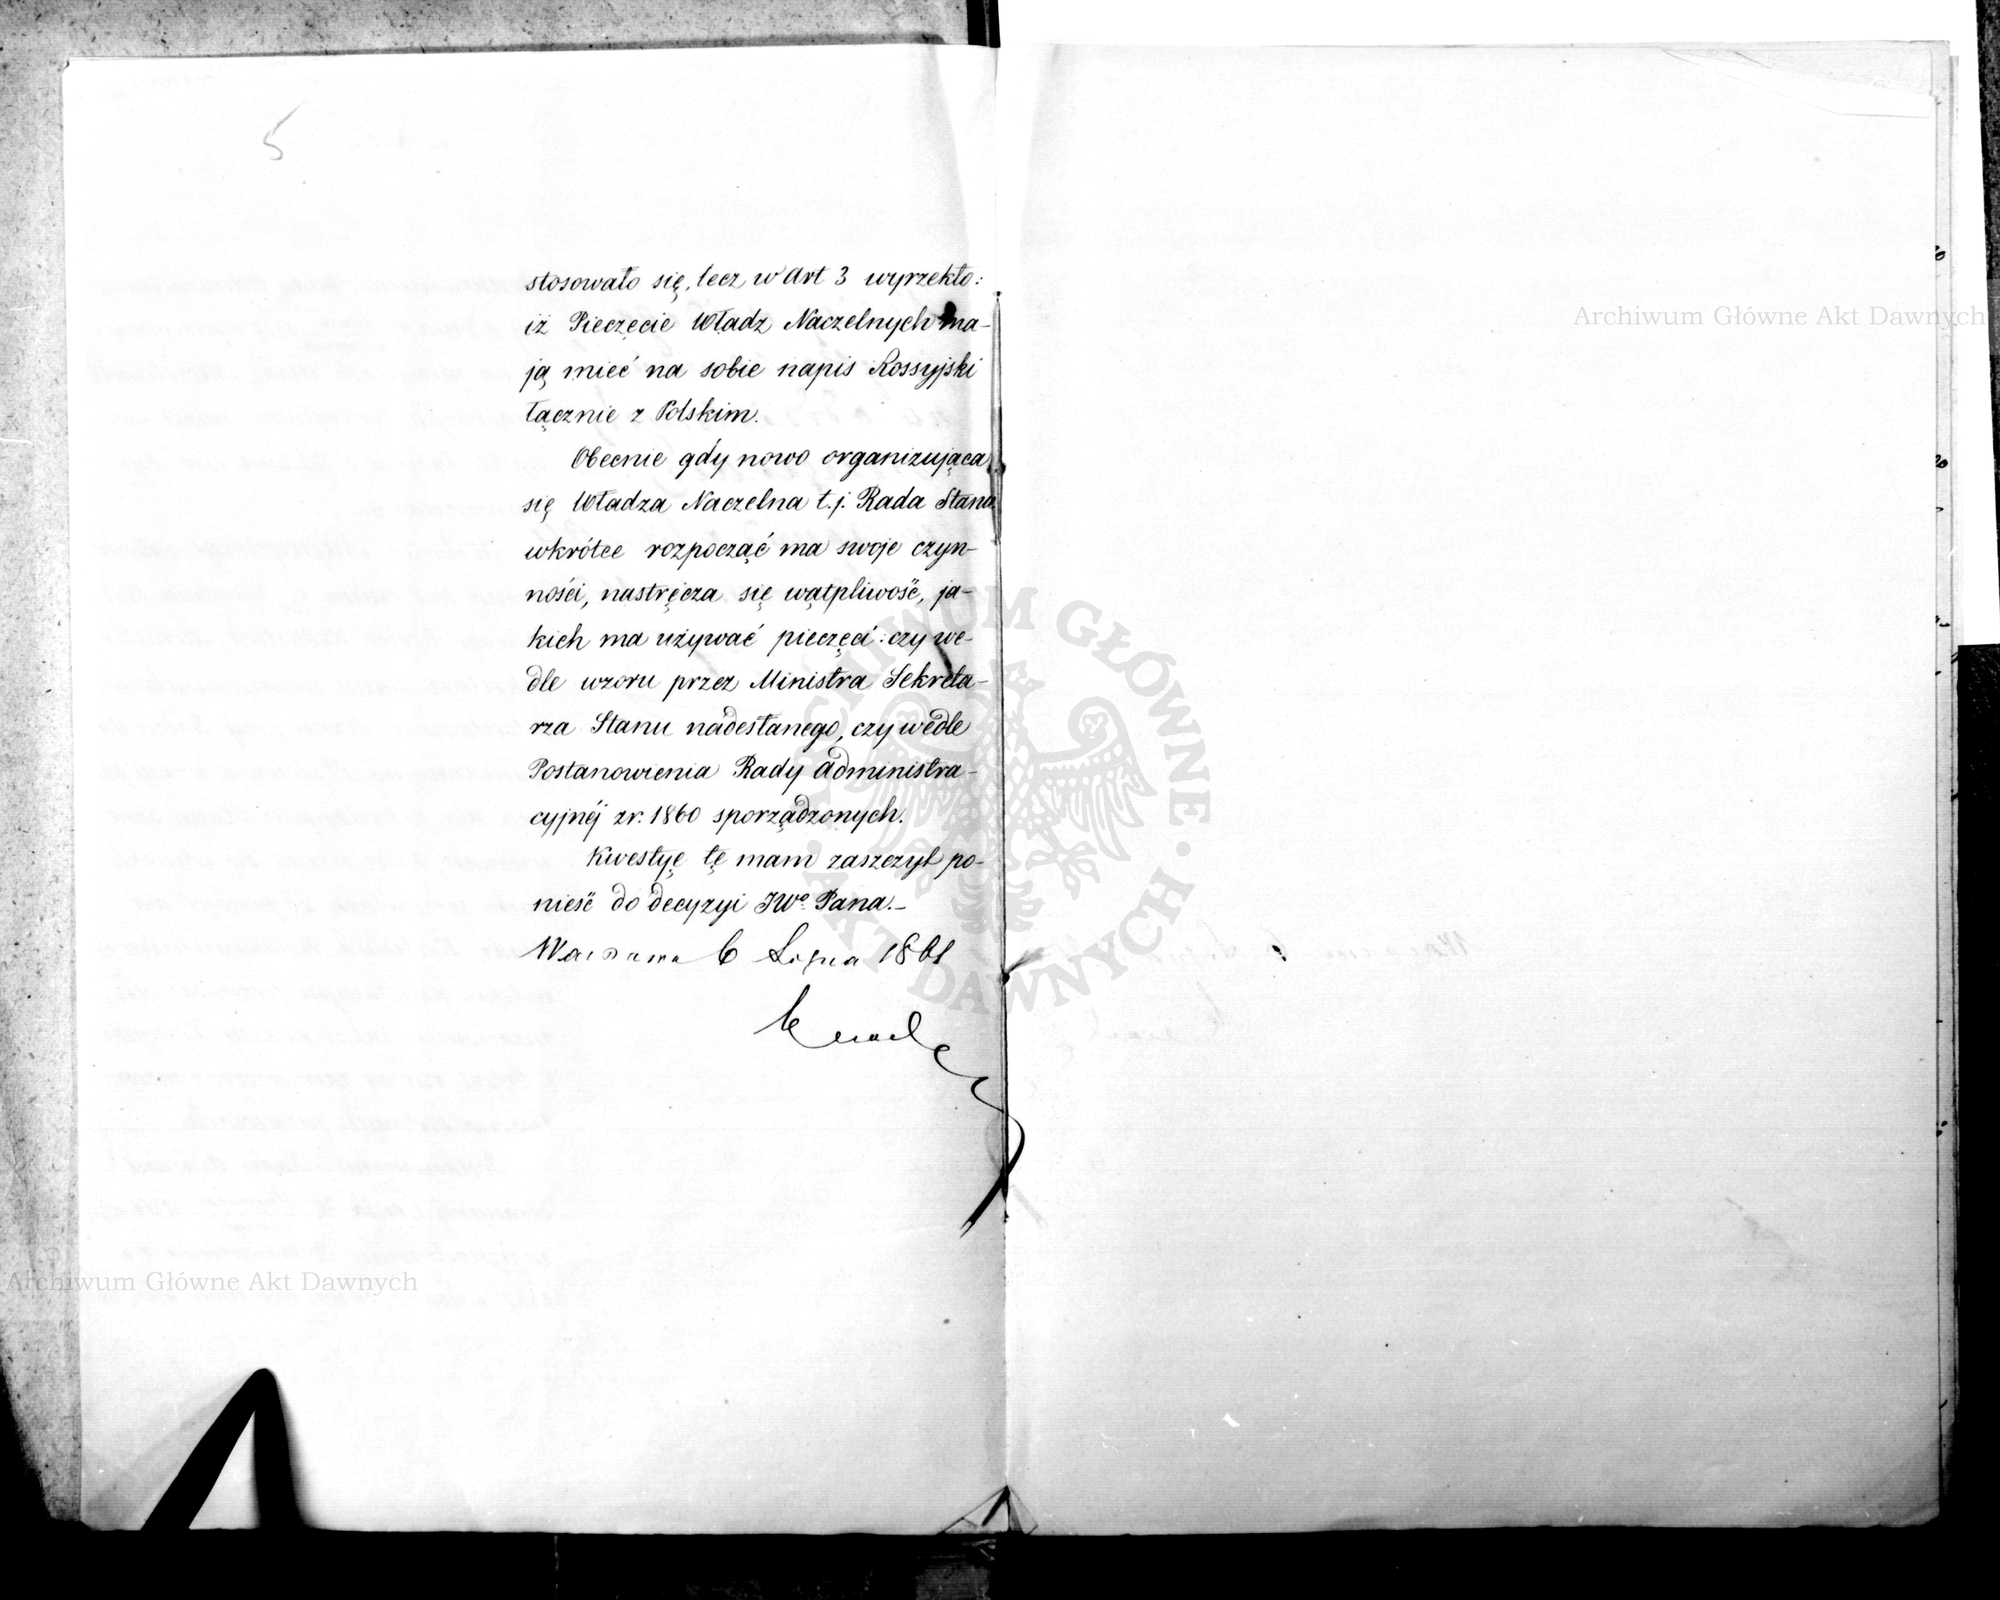 5
stosowało się, lecz w Art 3 wyrzekło:
iż Pieczęcie Władz Naczelnych ma-
ją mieć na sobie napis Rossyjski
łącznie z Polskim.
Obecnie gdy nowo organizująca
się Władza Naczelna t.j. Rada Stanu
wkrótce rozpocząć ma swoje czyn-
ności, nastręcza się wątpliwość, ja-
kich ma używać pieczęci: czy we-
dle wzoru przez Ministra Sekreta-
rza Stanu nadesłanego, czy wedle
Postanowienia Rady Administra-
cyjnéj z r. 1860 sporządzonych.
Kwestyę tę mam zaszczyt po-
nieść do decyzyi JWo Pana.-
Warszawa 6 Lipca 1861
Archiwum Główne Akt Dawnych
Archiwum Główne Akt Dawnych
ARCHIWUM GŁÓWNE · AKT DAWNYCH ·